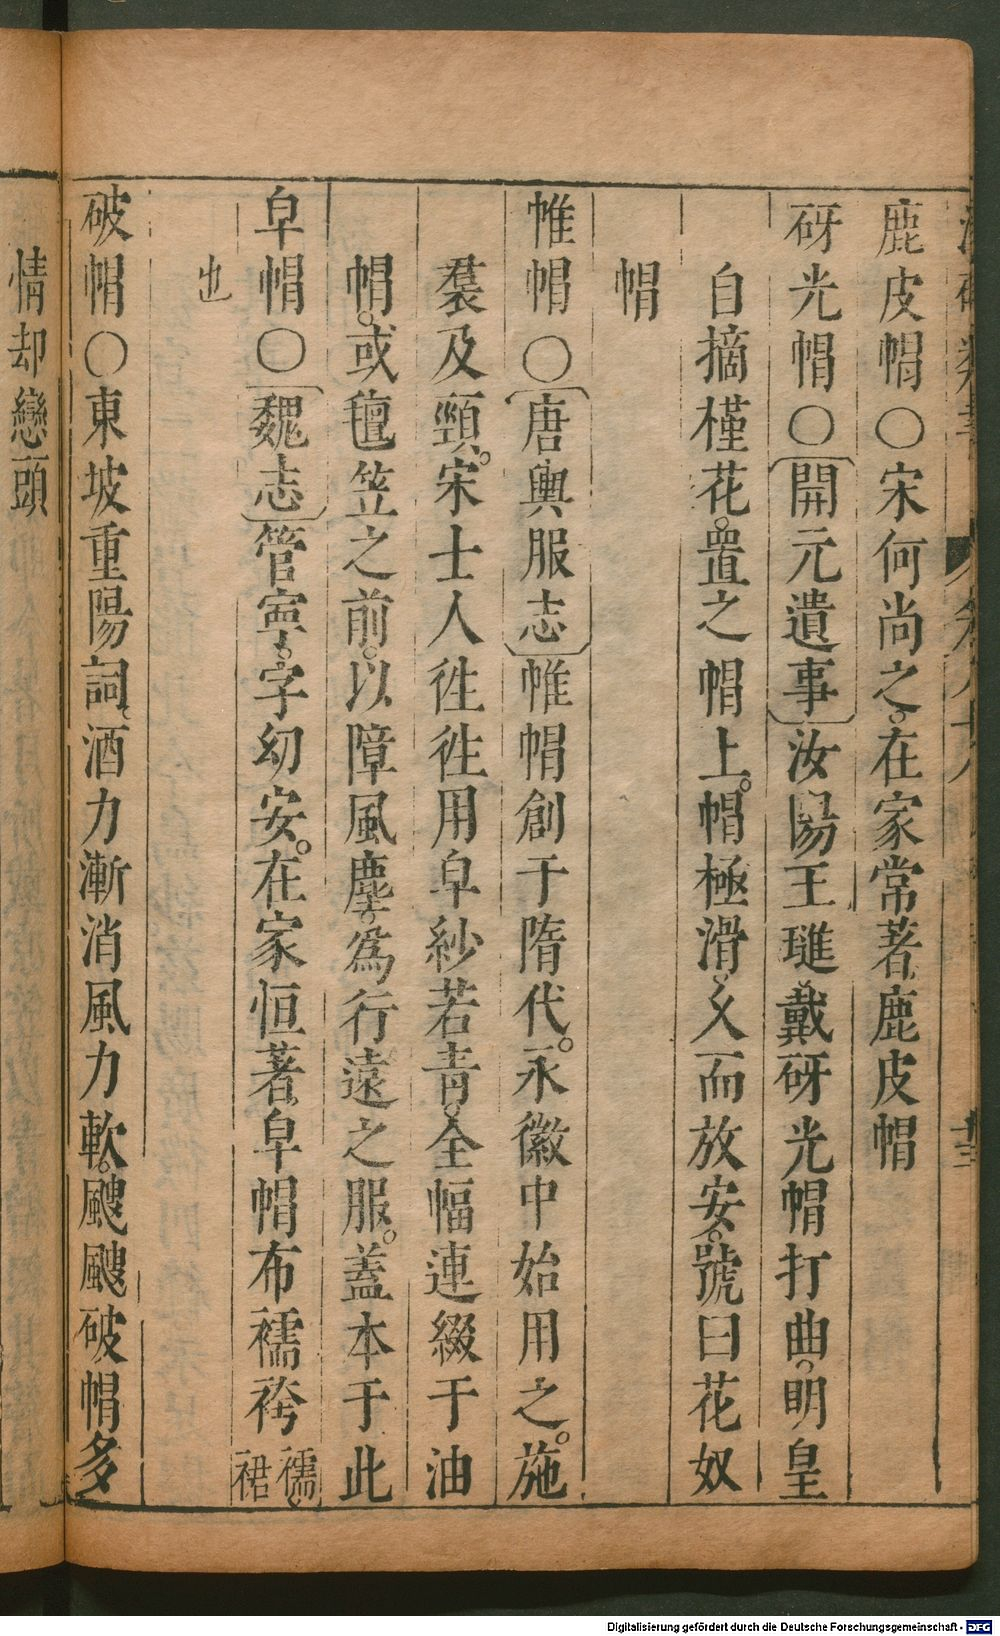 鹿皮帽〇宋何尚之。在家常著鹿皮帽
砑光帽〇〔開元遺事〕汝陽王璡。戴砑光帽打曲。明皇
自摘槿花。置之帽上。帽極滑。久而放安。號曰花奴
帽
帷帽〇〔唐輿服志〕帷帽創于隋代。永徽中始用之。施
裠及頸。宋士人徃徃用皁紗若青。全幅連綴于油
帽。或氊笠之前。以障風塵。爲行遠之服。蓋本于此
皁帽〇〔魏志〕管寧。字幼安。在家恒著皁帽布襦袴襦裙
也
破帽〇東坡重陽詞。酒力漸消風力軟。颼颼破帽多
情却戀頭
Digitalisierung gefördert durch die Deutsche Forschungsgemeinschaft - DFG